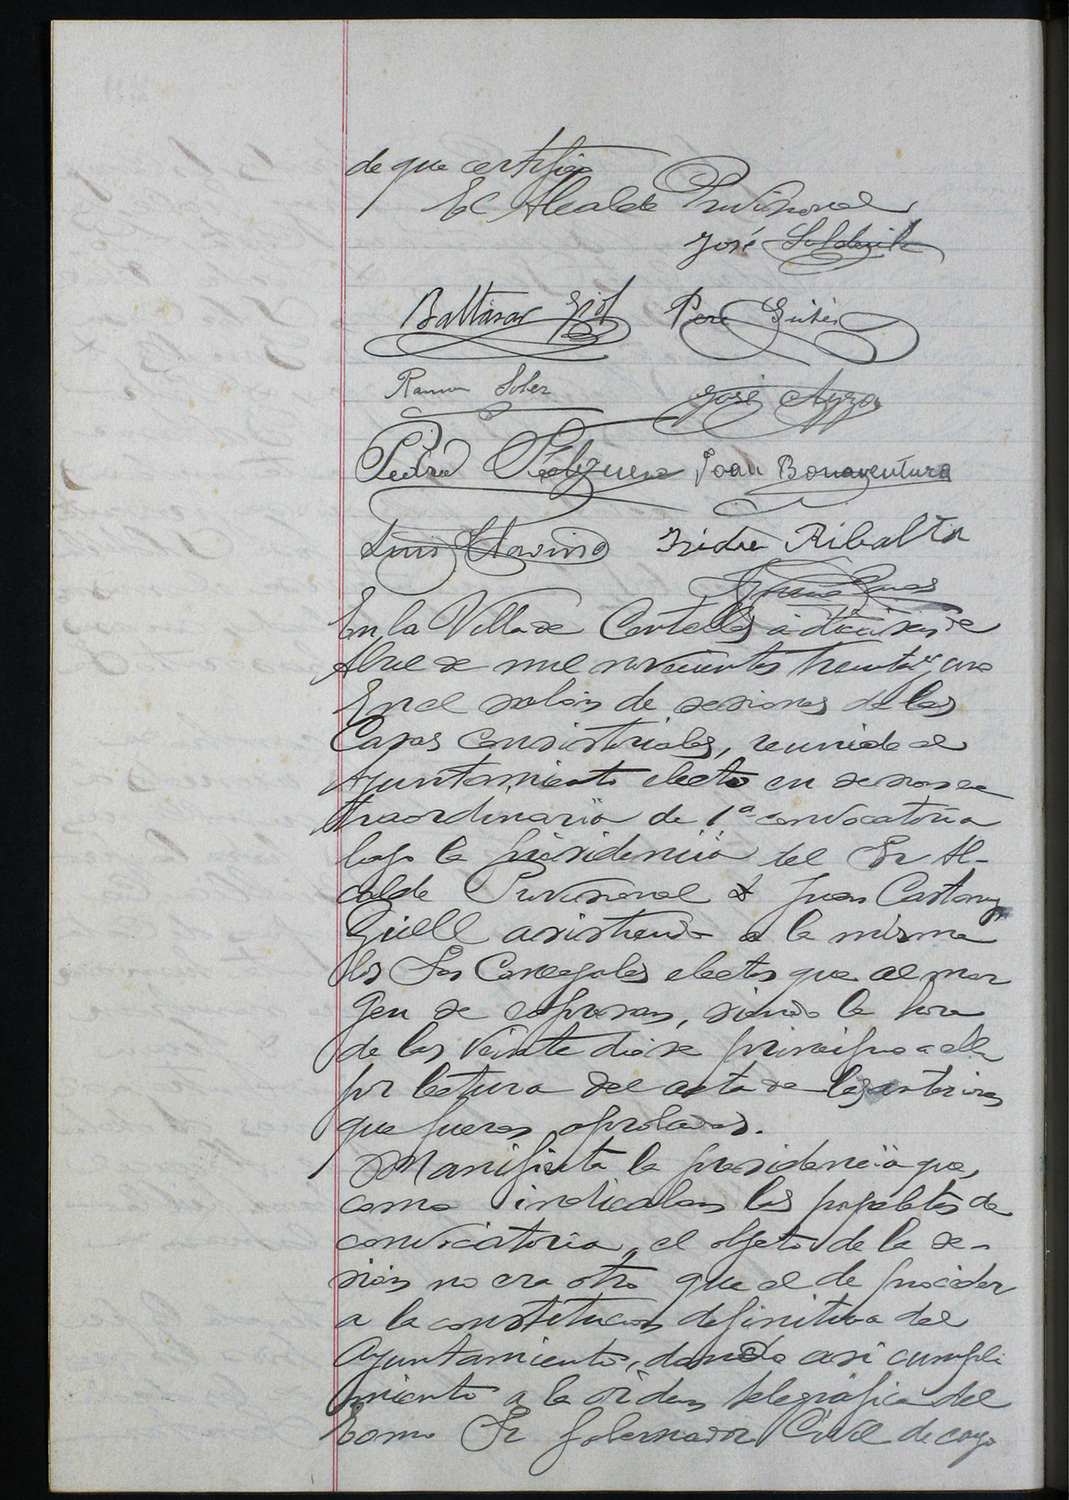 de que certifico
El Alcalde Provisional
José
Baltasar Pere
Ramon Soler José
Pedro Joan Bonaventura
Luis Isidre Ribalta
En la Villa de Centellas a dieciseis de
Abril de mil novecientos treinta y uno
En el salón de sesiones de las
Casas Consistoriales, reunido el
Ayuntamiento electo en sesion ex
traordinaria de 1ª convocatoria
bajo la presidencia del Sr Al-
calde Provisional D Juan Castany
Güell asistiendo a la misma
los Srs Concejales electos que al mar
gen se expresan, siendo la hora
de las veinte diose principio a ella
por lectura del acta de las anteriores
que fueron aprobadas.
Manifiesta la presidencia que,
como indicaban las papeletas de
convocatoria, el objeto de la se-
sion no era otro que el de proceder
a la constitucion definitiva del
Ayuntamiento, dando asi cumpli
miento a la orden telegráfica del
Exmo Sr Gobernador Civil de cuyo